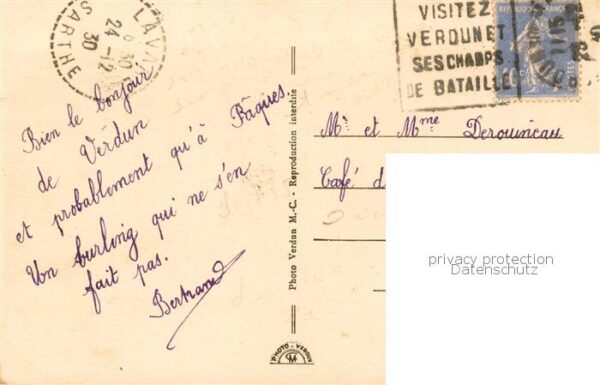 LAVA
8 30
24-12
30
SARTHE
VISITEZ
VERDUN ET
SES CHAMPS
DE BATAILLE
REPUBLIQUE FRANÇAISE
Bien le bonjour
de Verdun
et probablement qu'à Pâques
Un burling qui ne s'en
fait pas.
Bertrand
Photo Verdun M.-C. - Reproduction interdite
PHOTO - VERDUN
Mr et Mme Derouineau
Café d
privacy protection
Datenschutz